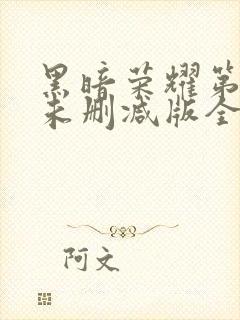 黑暗荣耀第
未删减版全
阿文